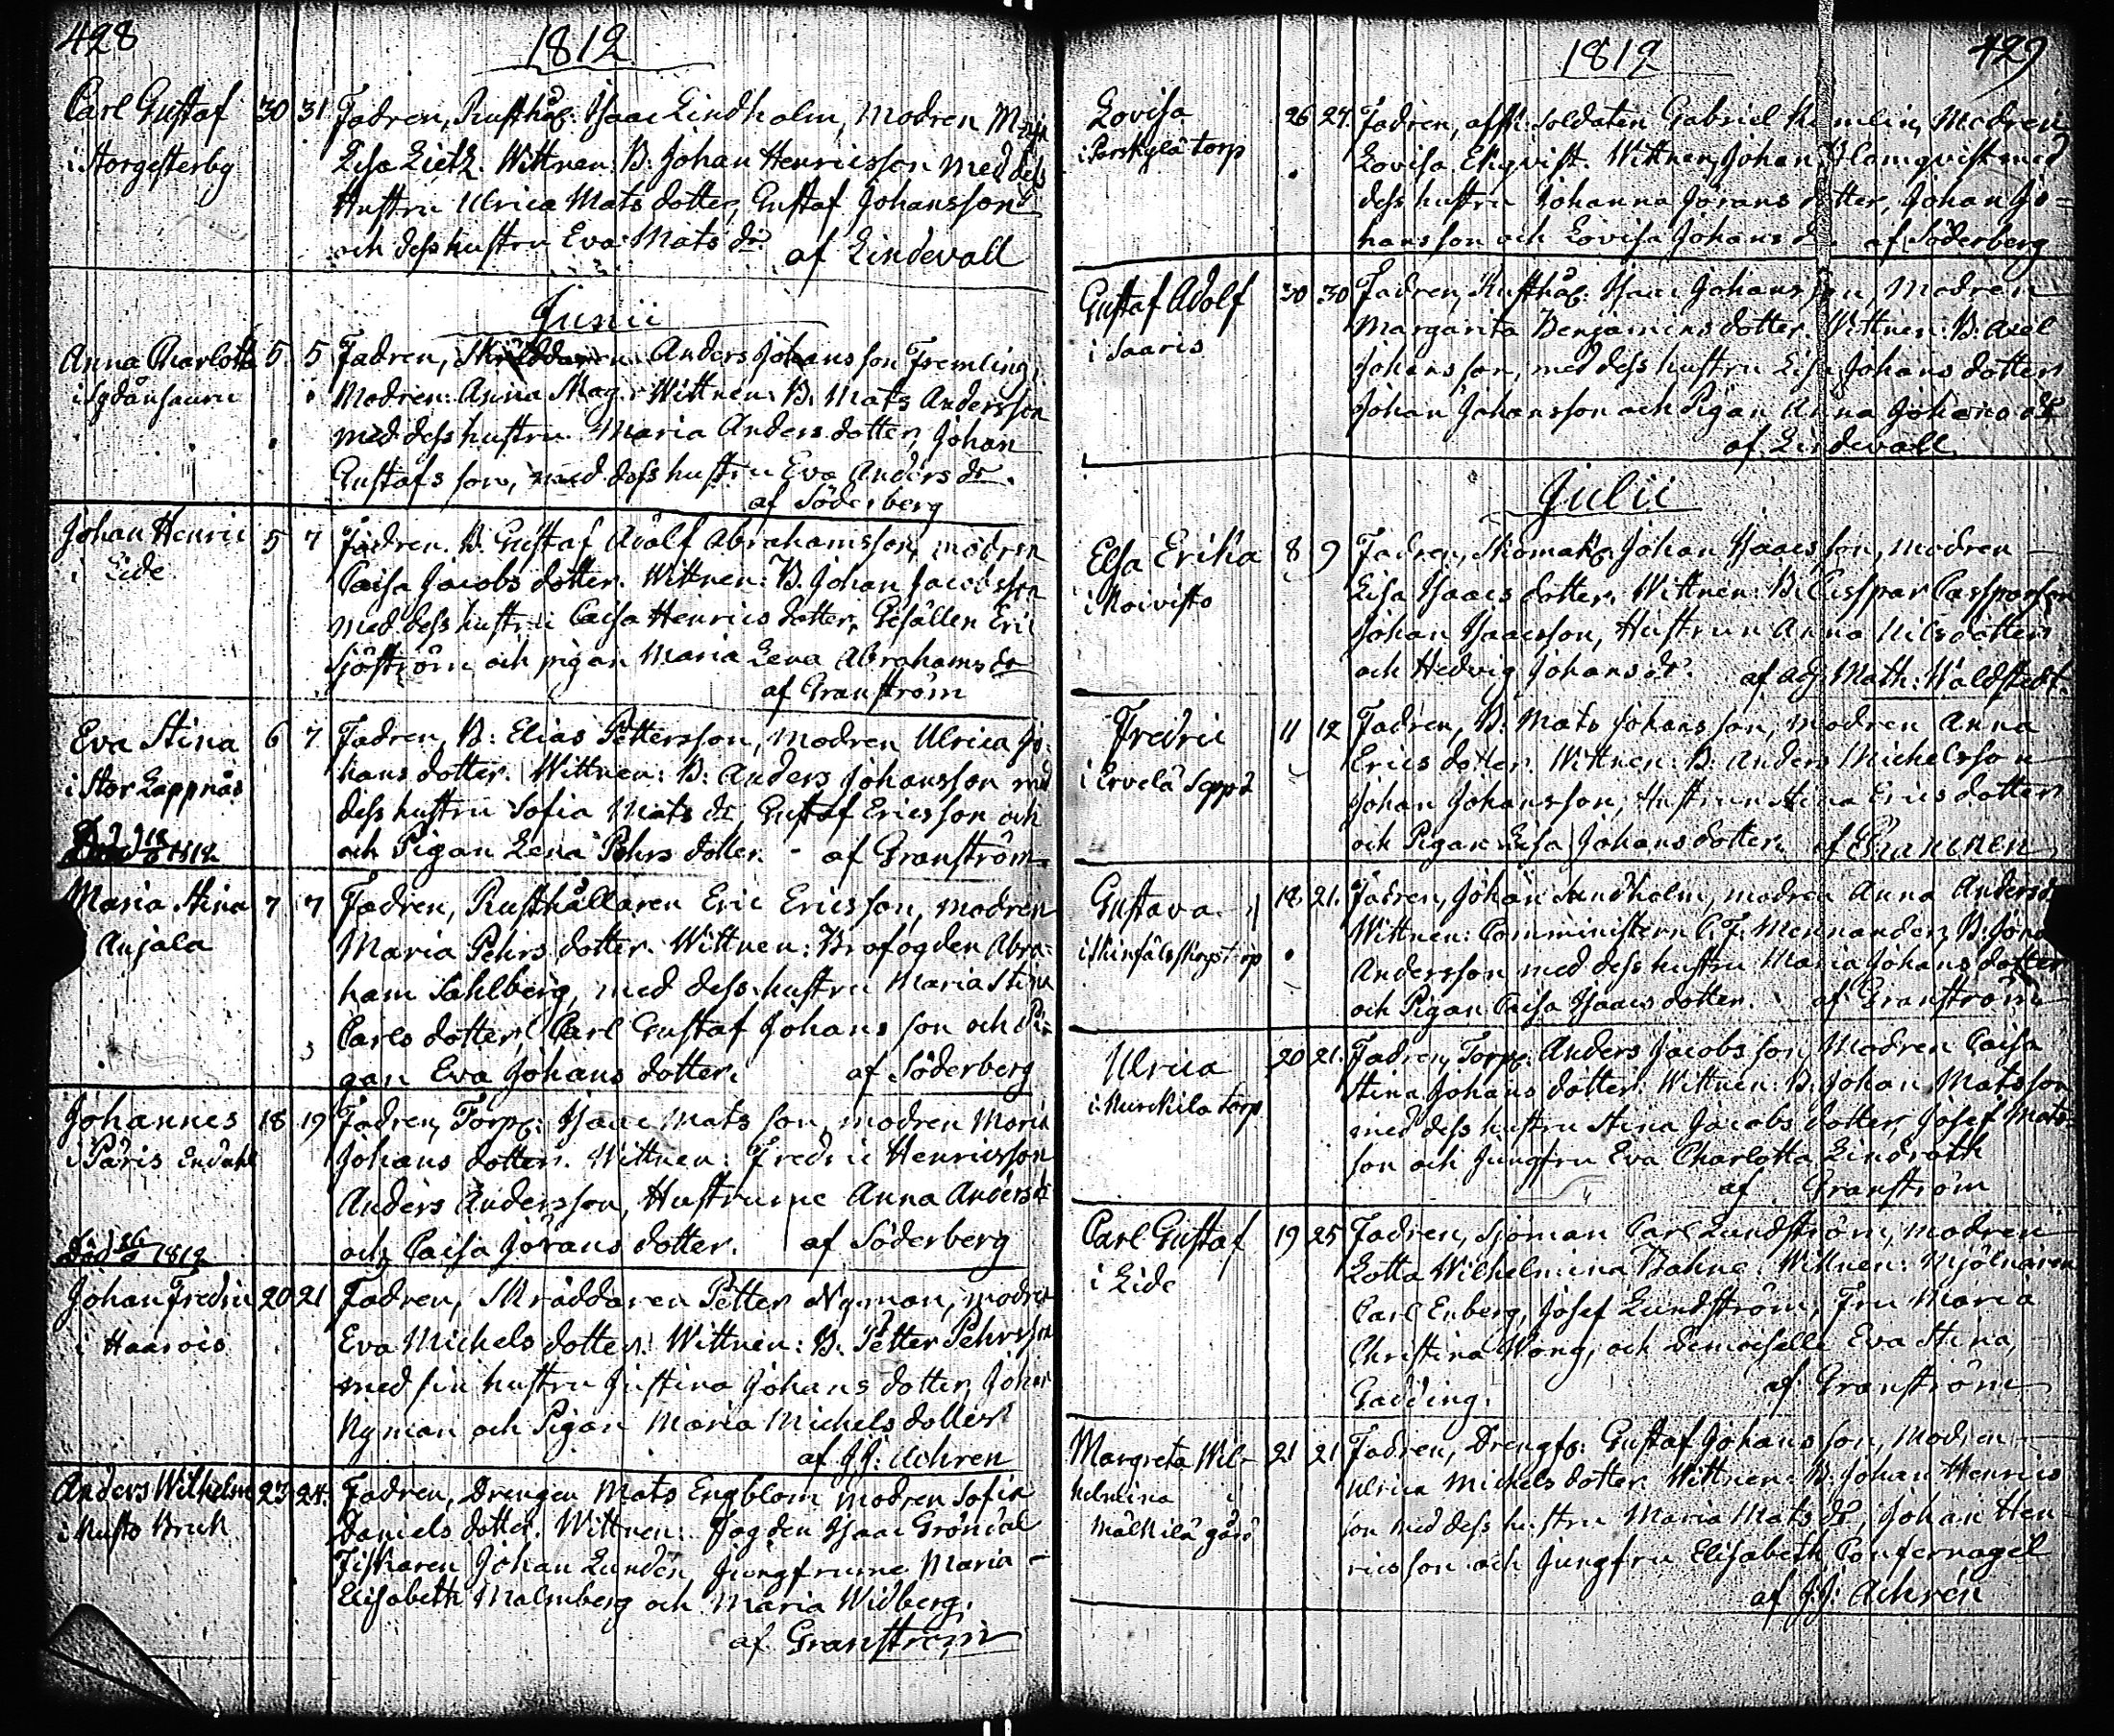 428
1812
Carl Gustaf 30 31 Fadren, Rusthåll: Isaac Lindholm, Modren Maja
i Storgesterby Lisa Lietz. Wittnen: B: Johan Henricsson med dess
Hustru Ulrica Mats dotter, Gustaf Johansson
och dess hustru Eva Mats dr. af Lindevall
Junii
Anna Charlotta 5 5 Fadren, Anders Johansson Fremling,
Modren: Anna Mag. Wittnen: B: Mats Andersson
med dess hustru Maria Anders dotter, Johan
Gustafs son, med dess hustru Eva Anders dr.
af Söderberg
Johan Henric 5 7 Fadren. B. Gustaf Adolf Abrahamsson, modren
i Lide Caisa Jacobs dotter. Wittnen: B. Johan Jacobsson
med dess hustru Caisa Henrics dotter, Gesällen Eric
Sjöström och pigan Maria Lena Abrahams dr
af Granström
Eva Stina 6 7 Fadren, B: Elias Pettersson, Modren Ulrica Jo-
hans dotter. Wittnen: B: Anders Johansson med
i Stor Lappnäs dess hustru Sofia Mats dr, Gustaf Ericsson och
1812 och Pigan Lena Pehrs dotter. - af Granström
Maria Stina 7 7 Fadren, Rusthållaren Eric Ericsson, modren
Anjala Maria Pehrs dotter. Wittnen: Brofogden Abra-
ham Sahlberg, med dess hustru Maria Stina
Carls dotter, Carl Gustaf Johans son och Pi-
gan Eva Johans dotter. af Söderberg
Johannes 18 19 Fadren, Torp: Isaac Mats son, modren Maria
i Päris Johans dotter. Wittnen: Fredric Henricsson
Anders Andersson, Hustrurne Anna Anders dr
Död 1812 och Caisa Jörans dotter. af Söderberg
Johan Fredric 20 21 Fadren, Skräddaren Petter Nyman, modren
i Haarois Eva Michels dotter. Wittnen: B. Petter Pehrsson
med sin hustru Justina Johans dotter, Johan
Nyman och Pigan Maria Michels dotter
af J.J: Achren
Anders Wilhelm 23 24. Fadren, Drengen Mats Engblom modren Sofia
i Bruk Daniels dotter. Wittnen: Fogden Isaac Gröndal
Fiskaren Johan Lunden, Jungfrurne Maria
Elisabeth Malmberg och Maria Widberg.
af Granström
1812
429
Lovisa 26 27. Fadren, afsk: Soldaten Gabriel Modren
torp Lovisa Ekqvist. Wittnen, Johan Blomqvist med
dess hustru Johanna Jörans dotter, Johan Jo-
hansson och Lovisa Johans dr. af Söderberg
Gustaf Adolf 30 30 Fadren, Rusthåll: Isaac Johansson, Modren
i Saaris Margarita Benjamins dotter. Wittnen: B: Axel
Johansson, med dess hustru Lisa Johans dotter
Johan Johansson och Pigan Anna Johans dr
af Lindevall
Julii
Elsa Erika 8 9 Fadren, Skomak: Johan Isaacs son, modren
i Koivisto Lisa Isaacs dotter. Wittnen: B: Casspar Cassparsson
Johan Isaacsson, Hustrun Anna Nils dotter
och Hedvig Johans dr. af Adj. Math: Waldstedt.
Fredric 11 12 Fadren, B: Mats Johans son, modren Anna
i Ervelä Seppä Erics dotter. Wittnen: B: Anders Michelsson
Johan Johansson, Hustrun Stina Erics dotter
och Pigan Lisa Johans dotter. af
Gustava 18. 21. Fadren, Johan Sundholm, modren Anna Anders dr
Wittnen: Comministern C.F. Mennander, B:
Andersson med dess hustru Maria Johans dotter
och Pigan Caisa Isaacs dotter. af Granström
Ulrica 20 21. Fadren, Torp: Anders Jacobs son, Modren Caisa
i torp Stina Johans dotter. Wittnen: B: Johan Matsson
med dess hustru Stina Jacobs dotter, Josef Mats-
son och Jungfru Eva Charlotta Lindroth
af Granström
Carl Gustaf 19 25 Fadren, Sjöman Carl Lundström, modren
i Lide Lotta Wilhelmina Bahne. Wittnen: Mjölnaren
Carl Enberg, Josef Lundström, Fru Maria
Christina Wong, och Demoiselle Eva Stina
Gadding. af Granström
Margreta Wil- 21 21 Fadren, Drengf: Gustaf Johans son, Modren
helmina i Ulrica Michels dotter. Wittnen: B: Johan Henrics
Mälkilä gård son med dess hustru Maria Mats dr, Johan Hen-
ricsson och Jungfru Elisabeth
af J.J: Achrén